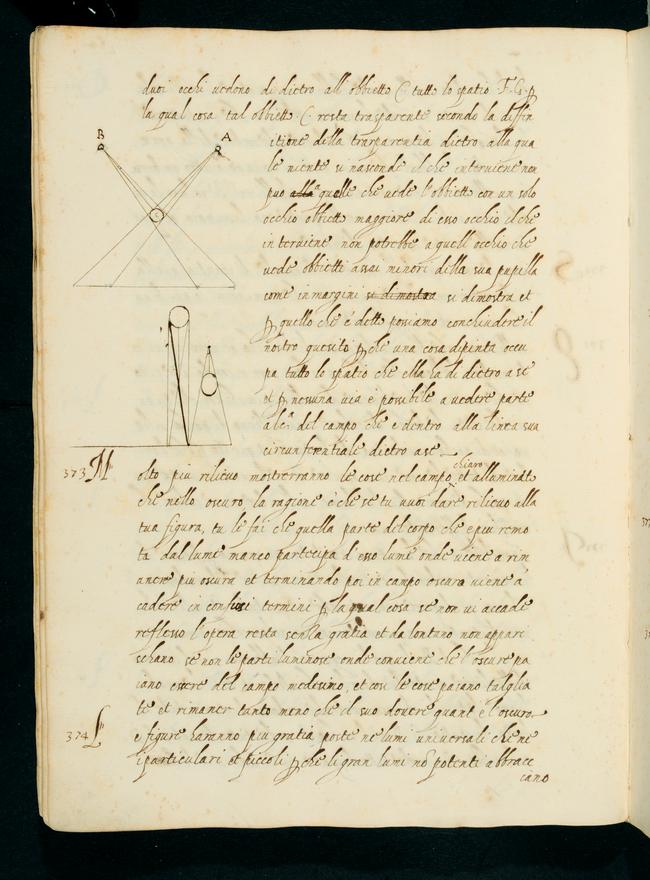 duoi occhi uedono di dietro all obbietto C. tutto lo spatio F.G. ꝑ
la qual cosa tal obbietto C. resta trasparente secondo la diffin
B
A
itione della trasparentia dietro alla qua
le niente si nasconde il che interuiene non
puo alla a quello che uede l'obbietto con un solo
occhio obbietto maggiore di esso occhio il che
C
interuiene non potrebbe a quell occhio che
uede obbietti assai minori della sua pupilla
come in margini si dimostra si dimostra et
ꝑ quello che é detto possiamo conchiudere il
nostro quesito ꝑ che una cosa dipinta occu
pa tutto lo spatio che ella ha di dietro a se
et ꝑ nessuna uia e possibile a uedere parte
alca del campo che e dentro alla linea sua
circunferentiale dietro a se
373 Molto piu rilieuo mostrerranno le cose nel campo chiaro et alluminato
che nello oscuro la ragione é che se tu uuoi dare rilieuo alla
tua figura, tu le fai che quella parte del corpo che é piu remo
ta dal lume manco partecipa d'esso lume onde uiene a rim
anere piu oscura et terminando poi in campo oscuro uiene à
cadere in confusi termini ꝑ la qual cosa se non ui accade
reflesso l'opera resta senza gratia et da lontano non appari
schano se non le parti luminose onde conuiene che l'oscure pa
iano essere del campo medesimo, et cosi le cose paiano taglia
te et rimaner tanto meno che il suo douere quant é l'oscuro
374 Le figure haranno piu gratia poste ne lumi uniuersali che ne
i particulari et piccoli ꝑ che li gran lumi nõ potenti abbrac
cano